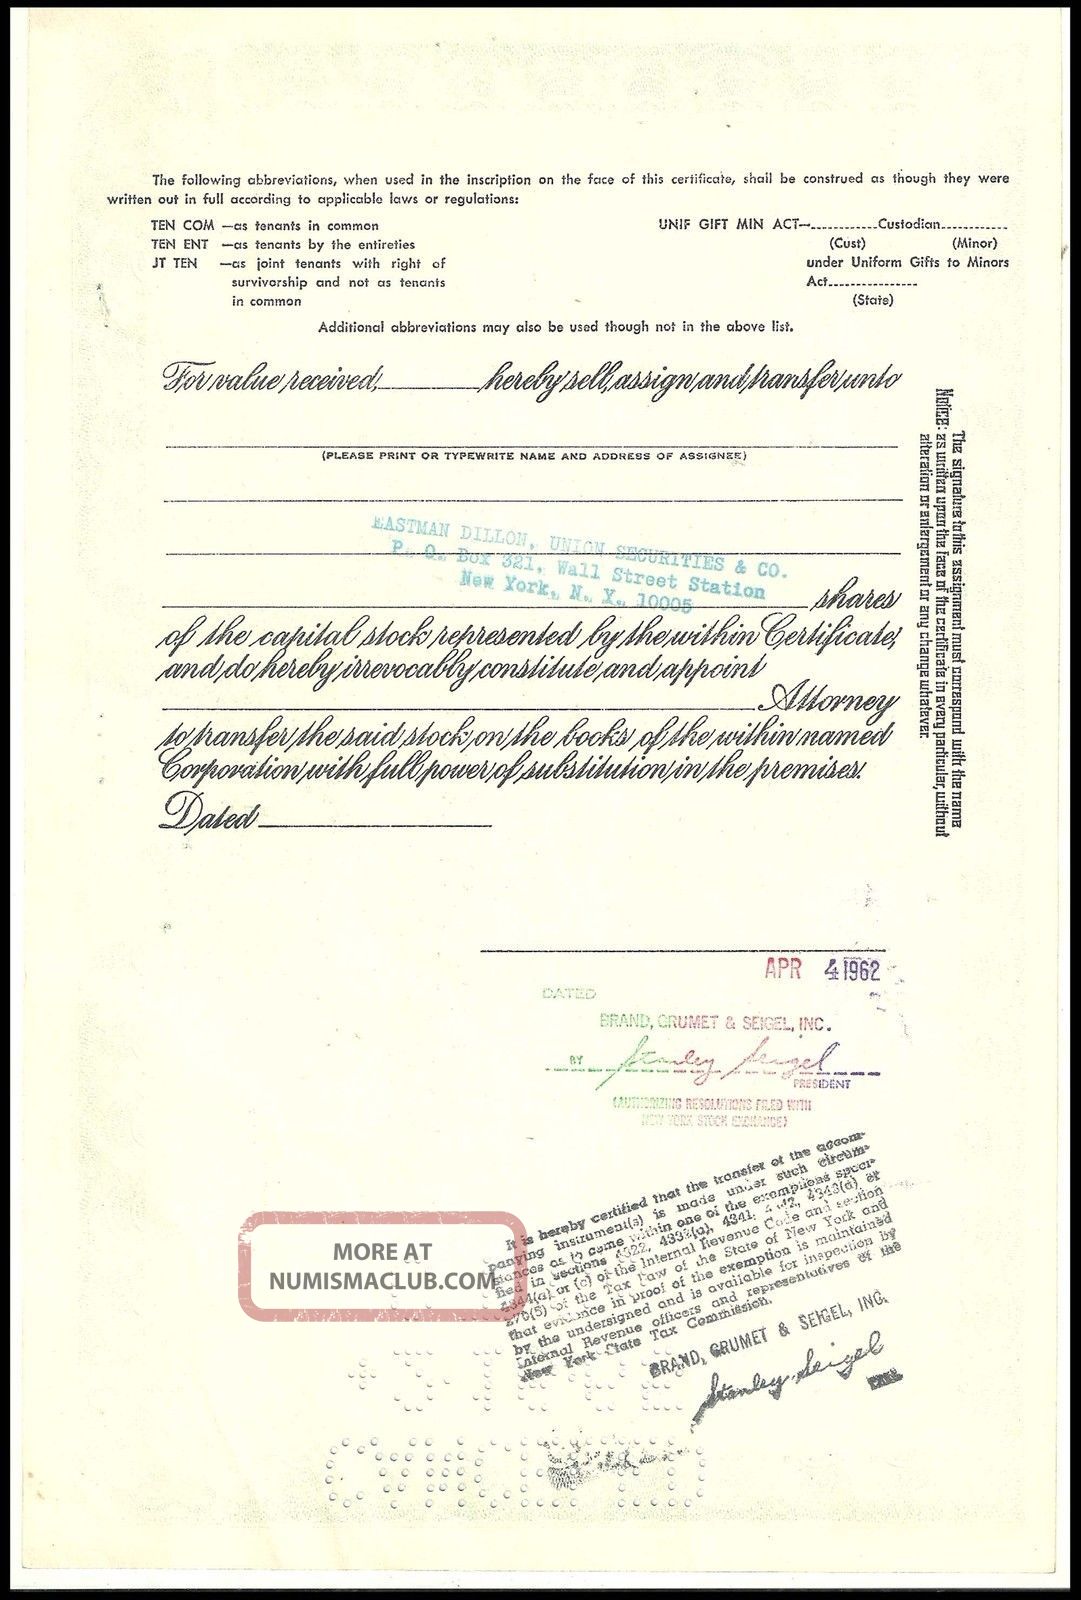 The following abbreviations, when used in the inscription on the face of this certificate, shall be construed as though they were
written out in full according to applicable laws or regulations:
TEN COM —as tenants in common
TEN ENT —as tenants by the entireties
JT TEN —as joint tenants with right of
survivorship and not as tenants
in common
UNIF GIFT MIN ACT—............Custodian............
(Cust) (Minor)
under Uniform Gifts to Minors
Act................
(State)
Additional abbreviations may also be used though not in the above list.
For value received, hereby sell, assign and transfer unto
(PLEASE PRINT OR TYPEWRITE NAME AND ADDRESS OF ASSIGNEE)
EASTMAN DILLON, UNION SECURITIES & CO.
P. O. Box 321, Wall Street Station
New York, N. Y. 10005
shares
of the capital stock represented by the within Certificate,
and do hereby irrevocably constitute and appoint
Attorney
to transfer the said stock on the books of the within named
Corporation with full power of substitution in the premises.
Dated
Notice:
The signature to this assignment must correspond with the name
as written upon the face of the certificate in every particular, without
alteration or enlargement or any change whatever.
APR 4 1962
DATED
BRAND, GRUMET & SEIGEL, INC.
BY Stanley Seigel
PRESIDENT
(AUTHORIZING RESOLUTIONS FILED WITH
NEW YORK STOCK EXCHANGE)
It is hereby certified that the transfer of the accom-
panying instrument(s) is made under such circum-
stances as to come within one of the exemptions speci-
fied in sections 4322, 4332(a), 4341, 4342, 4343(a) or
4344(a) or (c) of the Internal Revenue Code and section
270(5) of the Tax Law of the State of New York and
that evidence in proof of the exemption is maintained
by the undersigned and is available for inspection by
Internal Revenue officers and representatives of the
New York State Tax Commission.
BRAND, GRUMET & SEIGEL, INC.
Stanley Seigel
MORE AT
NUMISMACLUB.COM